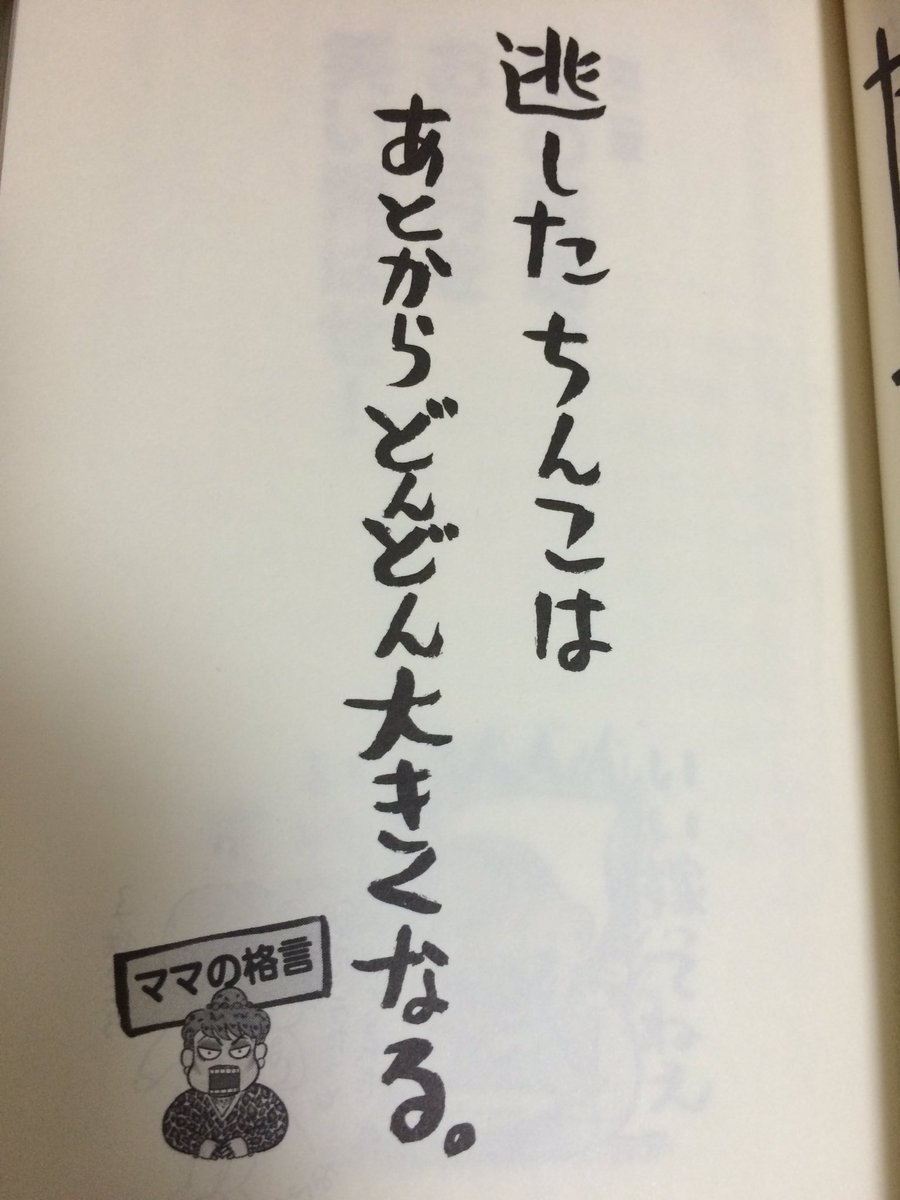 逃したちんこは
あとからどんどん大きくなる。
ママの格言